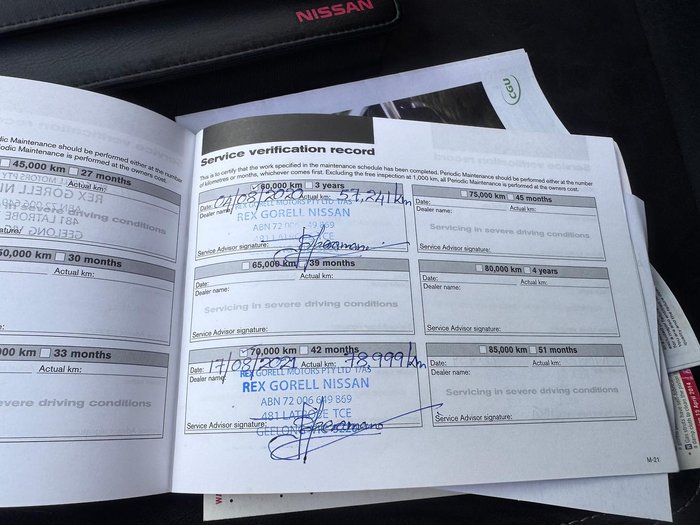 NISSAN
CGU
dic Maintenance should be performed either at the number
Periodic Maintenance is performed at the owners cost.
45,000 km 27 months
Actual km:
REX GORELL NI
481 LATROBE
GEELONG
50,000 km 30 months
Actual km:
000 km 33 months
Actual km:
evere driving conditions
Service verification record
This is to certify that the work specified in the maintenance schedule has been completed. Periodic Maintenance should be performed either at the number
of kilometres or months, whichever comes first. Excluding the free inspection at 1,000 km, all Periodic Maintenance is performed at the owners cost.
60,000 km 3 years
Date: 04/08/2020 Actual km: 57,241km
Dealer name:
REX GORELL NISSAN
ABN 72 006 649 869
Service Advisor signature:
65,000 km 39 months
Date: Actual km:
Dealer name:
Servicing in severe driving conditions
Service Advisor signature:
70,000 km 42 months
Date: 17/08/2021 Actual km: 78,999km
Dealer name:
REX GORELL MOTORS PTY LTD T/AS
REX GORELL NISSAN
ABN 72 006 649 869
481 LATROBE TCE
GEELONG
Service Advisor signature:
75,000 km 45 months
Date: Actual km:
Dealer name:
Servicing in severe driving conditions
Service Advisor signature:
80,000 km 4 years
Date: Actual km:
Dealer name:
Service Advisor signature:
85,000 km 51 months
Date: Actual km:
Dealer name:
Servicing in severe driving conditions
Service Advisor signature:
M-21